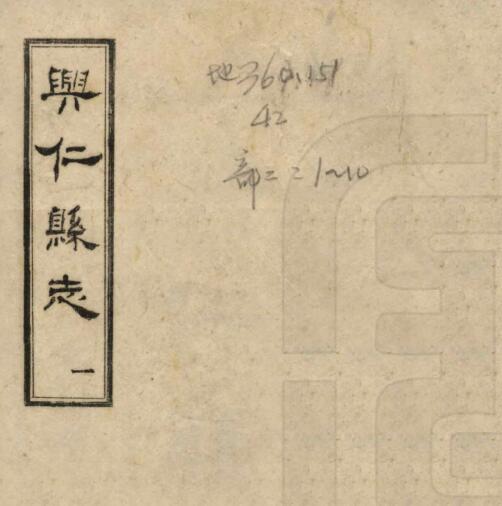 興仁縣志
一
地360.151
42
部二21~10